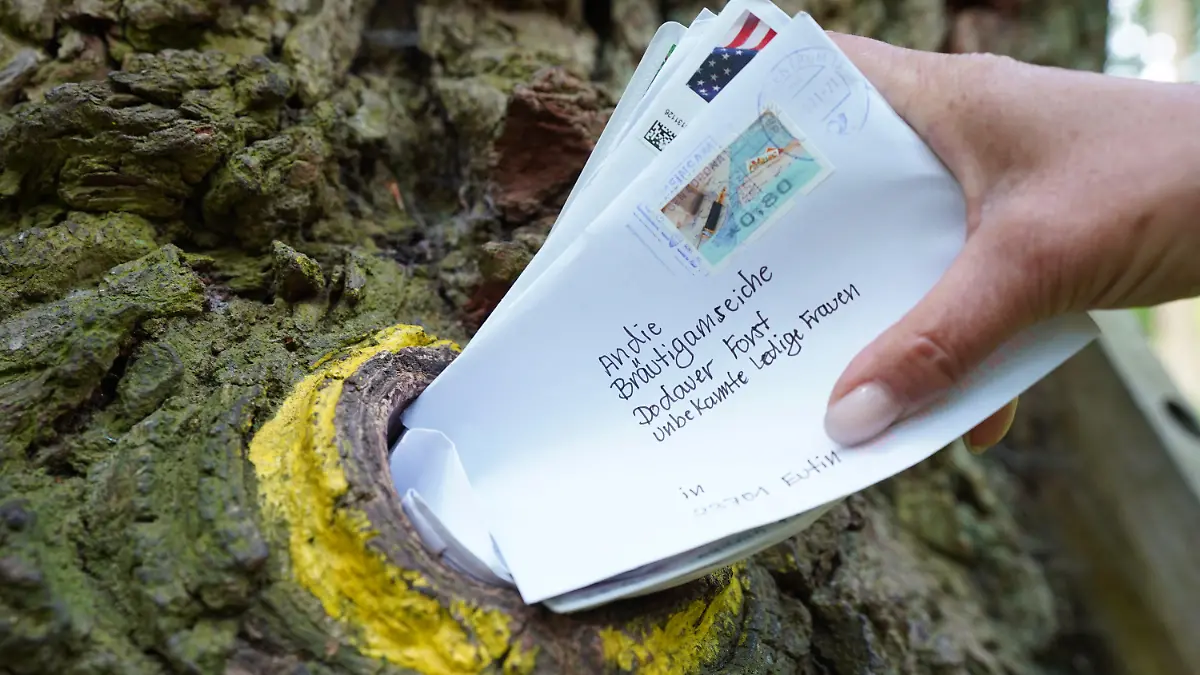 An die
Bräutigamseiche
Dodauer Forst
unbekannte Ledige Frauen
in
Eutin